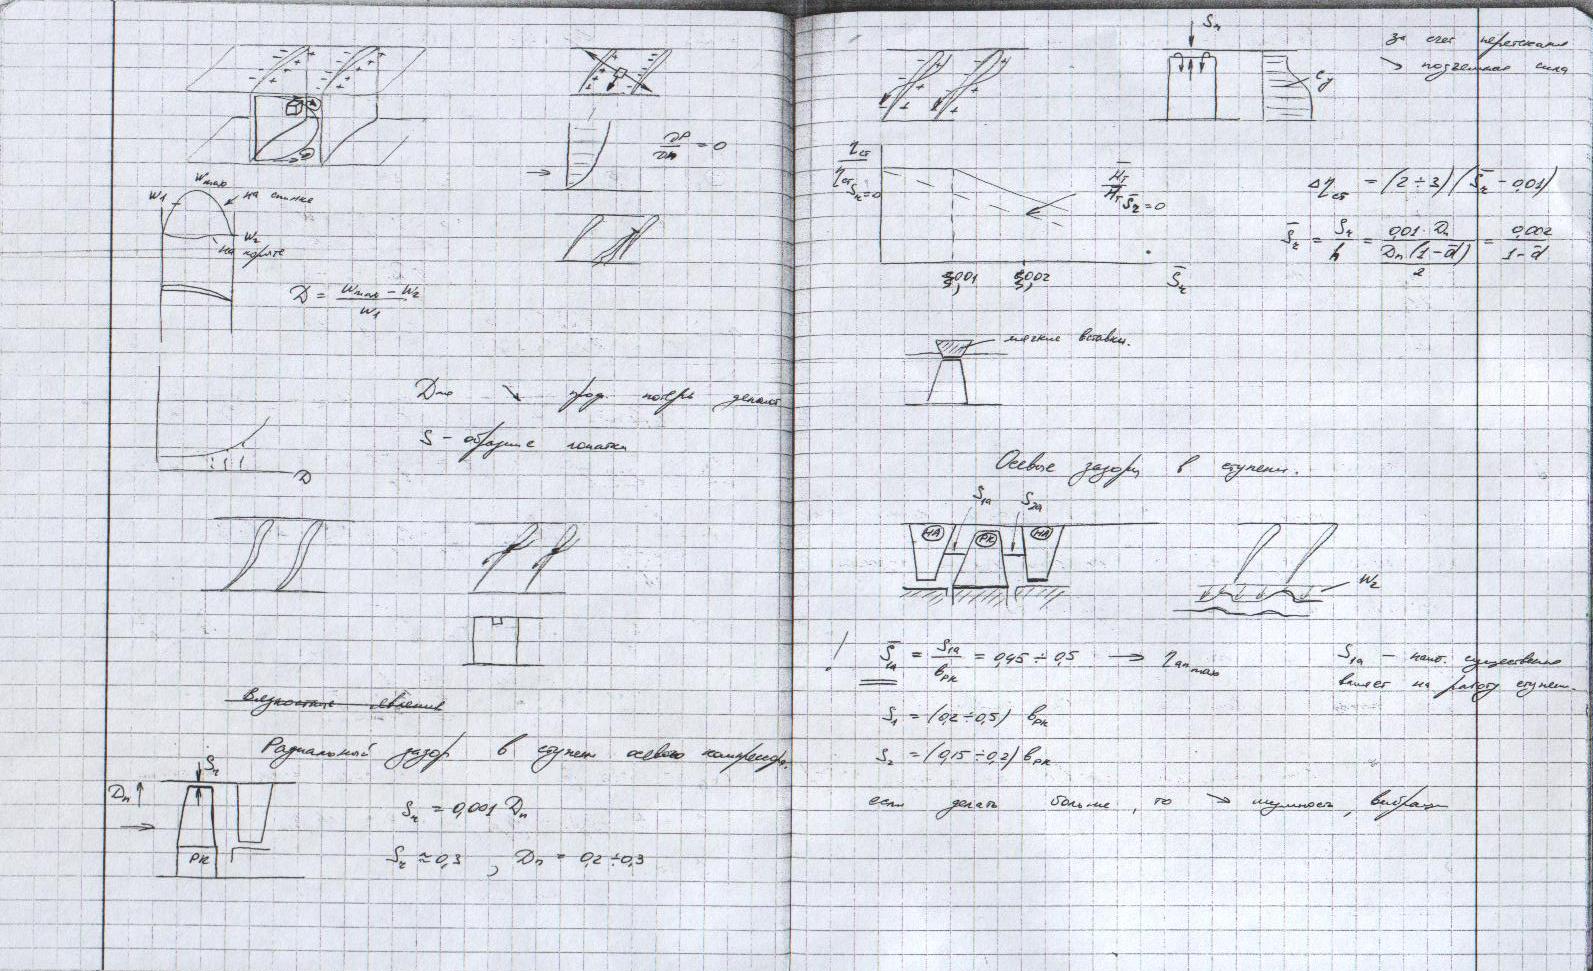 Wmax
W1
на спинке
W2
на корыте
D = (Wmax − W2) / W1
∂P/∂n = 0
D
Dло ↘ проф. потерь делают
S – образные лопатки
Вязкостные явления
Радиальный зазор в ступени осевого компрессора.
Sr
Dп
РК
Sr = 0,001 Dп
Sr ≈ 0,3 , Dп = 0,2 ÷ 0,3
Sr
за счет перетекания
↘ подъемная сила
Cy
ηст / ηст S̄r=0
H̄т / H̄т S̄r=0
0,01
0,02
S̄r
Δηст = (2 ÷ 3)(S̄r − 0,01)
S̄r = Sr / h = 0,001 · Dп / (Dп (1 − d̄) / 2) = 0,002 / (1 − d̄)
мягкие вставки.
Осевые зазоры в ступени.
S1a
S2a
НА
РК
НА
W2
! S̄1a = S1a / bрк = 0,45 ÷ 0,5 → ηad max
S1a – наиб. существенно
влияет на работу ступени.
S1 = (0,2 ÷ 0,5) bрк
S2 = (0,15 ÷ 0,2) bрк
если делать больше, то ↘ шумность, вибрации